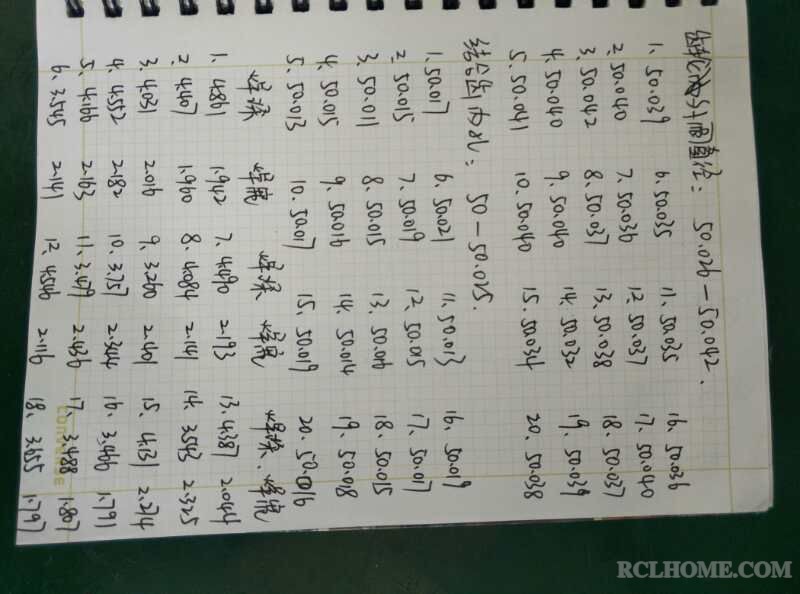 齿轮外圆直径: 50.026—50.042.
1. 50.039 6. 50.035 11. 50.035 16. 50.036
2. 50.040 7. 50.036 12. 50.037 17. 50.040
3. 50.042 8. 50.037 13. 50.038 18. 50.037
4. 50.040 9. 50.040 14. 50.032 19. 50.039
5. 50.041 10. 50.040 15. 50.034 20. 50.038
结合齿内孔: 50—50.025.
1. 50.017 6. 50.021 11. 50.013 16. 50.019
2. 50.015 7. 50.019 12. 50.015 17. 50.017
3. 50.011 8. 50.015 13. 50.006 18. 50.015
4. 50.015 9. 50.016 14. 50.014 19. 50.08
5. 50.013 10. 50.017 15. 50.019 20. 50.016
焊深 焊宽 焊深 焊宽 焊深. 焊宽
1. 4.861 1.942 7. 4.490 2.193 13. 4.387 2.044
2. 4.407 1.960 8. 4.084 2.141 14. 3.543 2.325
3. 4.031 2.016 9. 3.260 2.401 15. 4.131 2.274
4. 4.552 2.182 10. 3.757 2.344 16. 3.466 1.791
5. 4.166 2.163 11. 3.479 2.436 17. 3.488 1.807
6. 3.545 2.141 12. 4.546 2.116 18. 3.655 1.797
RCLHOME.COM